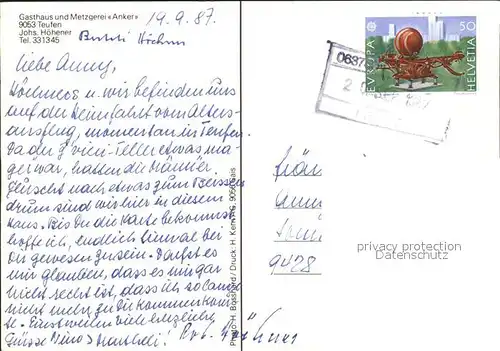 Gasthaus und Metzgerei «Anker»
9053 Teufen
Johs. Höhener
Tel. 331345
19.9.87.
Liebe Anny,
Höheners u. wir befinden uns
auf der Heimfahrt vom Alters-
ausflug, momentan in Teufen.
Da der z'vieri-Teller etwas ma-
ger war, hatten die Männer
Gluscht nach etwas zum Beissen
drum sind wir hier in diesem
Haus. Bis du die Karte bekommst
hoffe ich, endlich einmal bei
Dir gewesen zu sein. Darfst es
mir glauben, dass es mir gar
nicht recht ist, dass ich so lange
nicht mehr zu Dir kommen konn-
te. Einstweilen viele herzliche
Grüsse
EUROPA
50
HELVETIA
0637
Photo: H. Bosshard / Druck: H. Kern AG, 9056 Gais
9428
privacy protection
Datenschutz